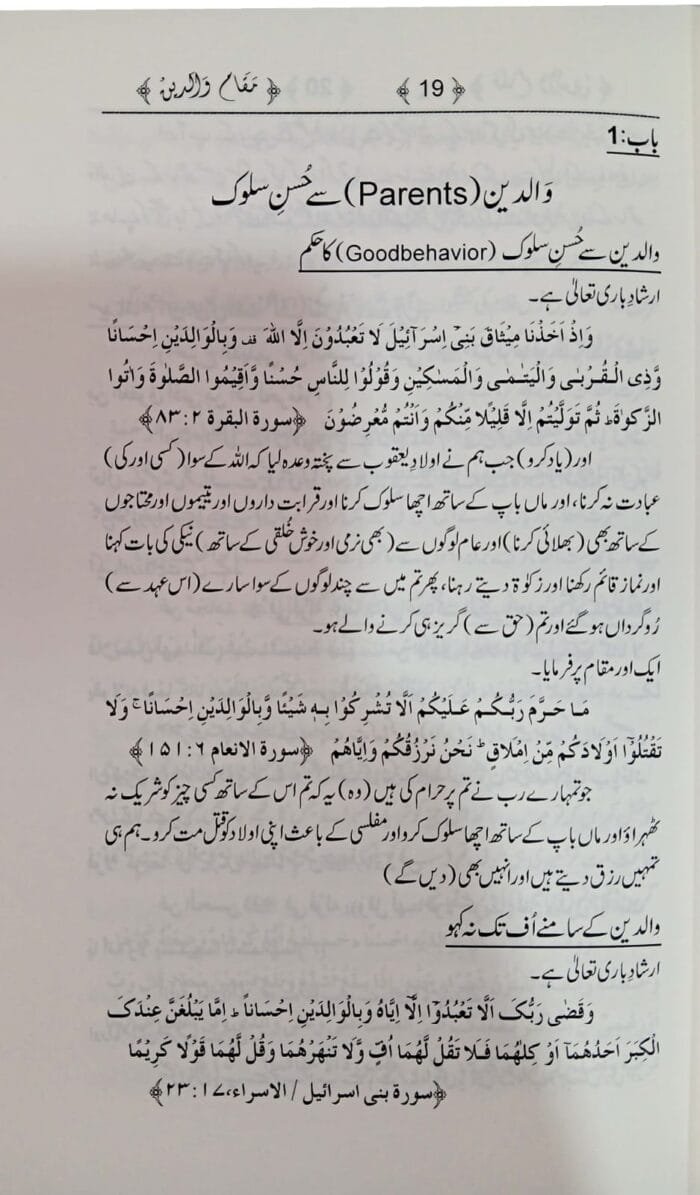 ﴿ مقام والدین ﴾ ﴿ 19 ﴾
باب:1
والدین (Parents) سے حُسنِ سلوک
والدین سے حُسنِ سلوک (Goodbehavior) کا حکم
ارشادِ باری تعالیٰ ہے۔
وَاِذْ اَخَذْنَا مِيْثَاقَ بَنِيْٓ اِسْرَآئِيْلَ لَا تَعْبُدُوْنَ اِلَّا اللهَ قف وَبِالْوَالِدَيْنِ اِحْسَانًا
وَّذِي الْقُرْبٰى وَالْيَتٰمٰى وَالْمَسٰكِيْنِ وَقُوْلُوْا لِلنَّاسِ حُسْنًا وَّاَقِيْمُوا الصَّلٰوةَ وَاٰتُوا
الزَّكٰوةَ ط ثُمَّ تَوَلَّيْتُمْ اِلَّا قَلِيْلًا مِّنْكُمْ وَاَنْتُمْ مُّعْرِضُوْنَ ﴿سورة البقرة ۲:۸۳﴾
اور (یاد کرو) جب ہم نے اولادِ یعقوب سے پختہ وعدہ لیا کہ اللہ کے سوا (کسی اور کی)
عبادت نہ کرنا، اور ماں باپ کے ساتھ اچھا سلوک کرنا اور قرابت داروں اور یتیموں اور محتاجوں
کے ساتھ بھی (بھلائی کرنا) اور عام لوگوں سے (بھی نرمی اور خوش خُلقی کے ساتھ) نیکی کی بات کہنا
اور نماز قائم رکھنا اور زکوٰۃ دیتے رہنا، پھر تم میں سے چند لوگوں کے سوا سارے (اس عہد سے)
رُوگرداں ہو گئے اور تم (حق سے) گریز ہی کرنے والے ہو۔
ایک اور مقام پر فرمایا۔
مَا حَرَّمَ رَبُّكُمْ عَلَيْكُمْ اَلَّا تُشْرِكُوْا بِهٖ شَيْئًا وَّبِالْوَالِدَيْنِ اِحْسَانًا ج وَلَا
تَقْتُلُوْٓا اَوْلَادَكُمْ مِّنْ اِمْلَاقٍ ط نَحْنُ نَرْزُقُكُمْ وَاِيَّاهُمْ ﴿سورة الانعام ۶:۱۵۱﴾
جو تمہارے رب نے تم پر حرام کی ہیں (وہ) یہ کہ تم اس کے ساتھ کسی چیز کو شریک نہ
ٹھہراؤ اور ماں باپ کے ساتھ اچھا سلوک کرو اور مفلسی کے باعث اپنی اولاد کو قتل مت کرو۔ ہم ہی
تمہیں رزق دیتے ہیں اور انہیں بھی (دیں گے)
والدین کے سامنے اُف تک نہ کہو
ارشادِ باری تعالیٰ ہے۔
وَقَضٰى رَبُّكَ اَلَّا تَعْبُدُوْٓا اِلَّآ اِيَّاهُ وَبِالْوَالِدَيْنِ اِحْسَاناً ط اِمَّا يَبْلُغَنَّ عِنْدَكَ
الْكِبَرَ اَحَدُهُمَآ اَوْ كِلٰهُمَا فَلَا تَقُلْ لَّهُمَآ اُفٍّ وَّلَا تَنْهَرْهُمَا وَقُلْ لَّهُمَا قَوْلًا كَرِيْمًا
﴿سورة بنی اسرائیل / الاسراء، ۱۷:۲۳﴾